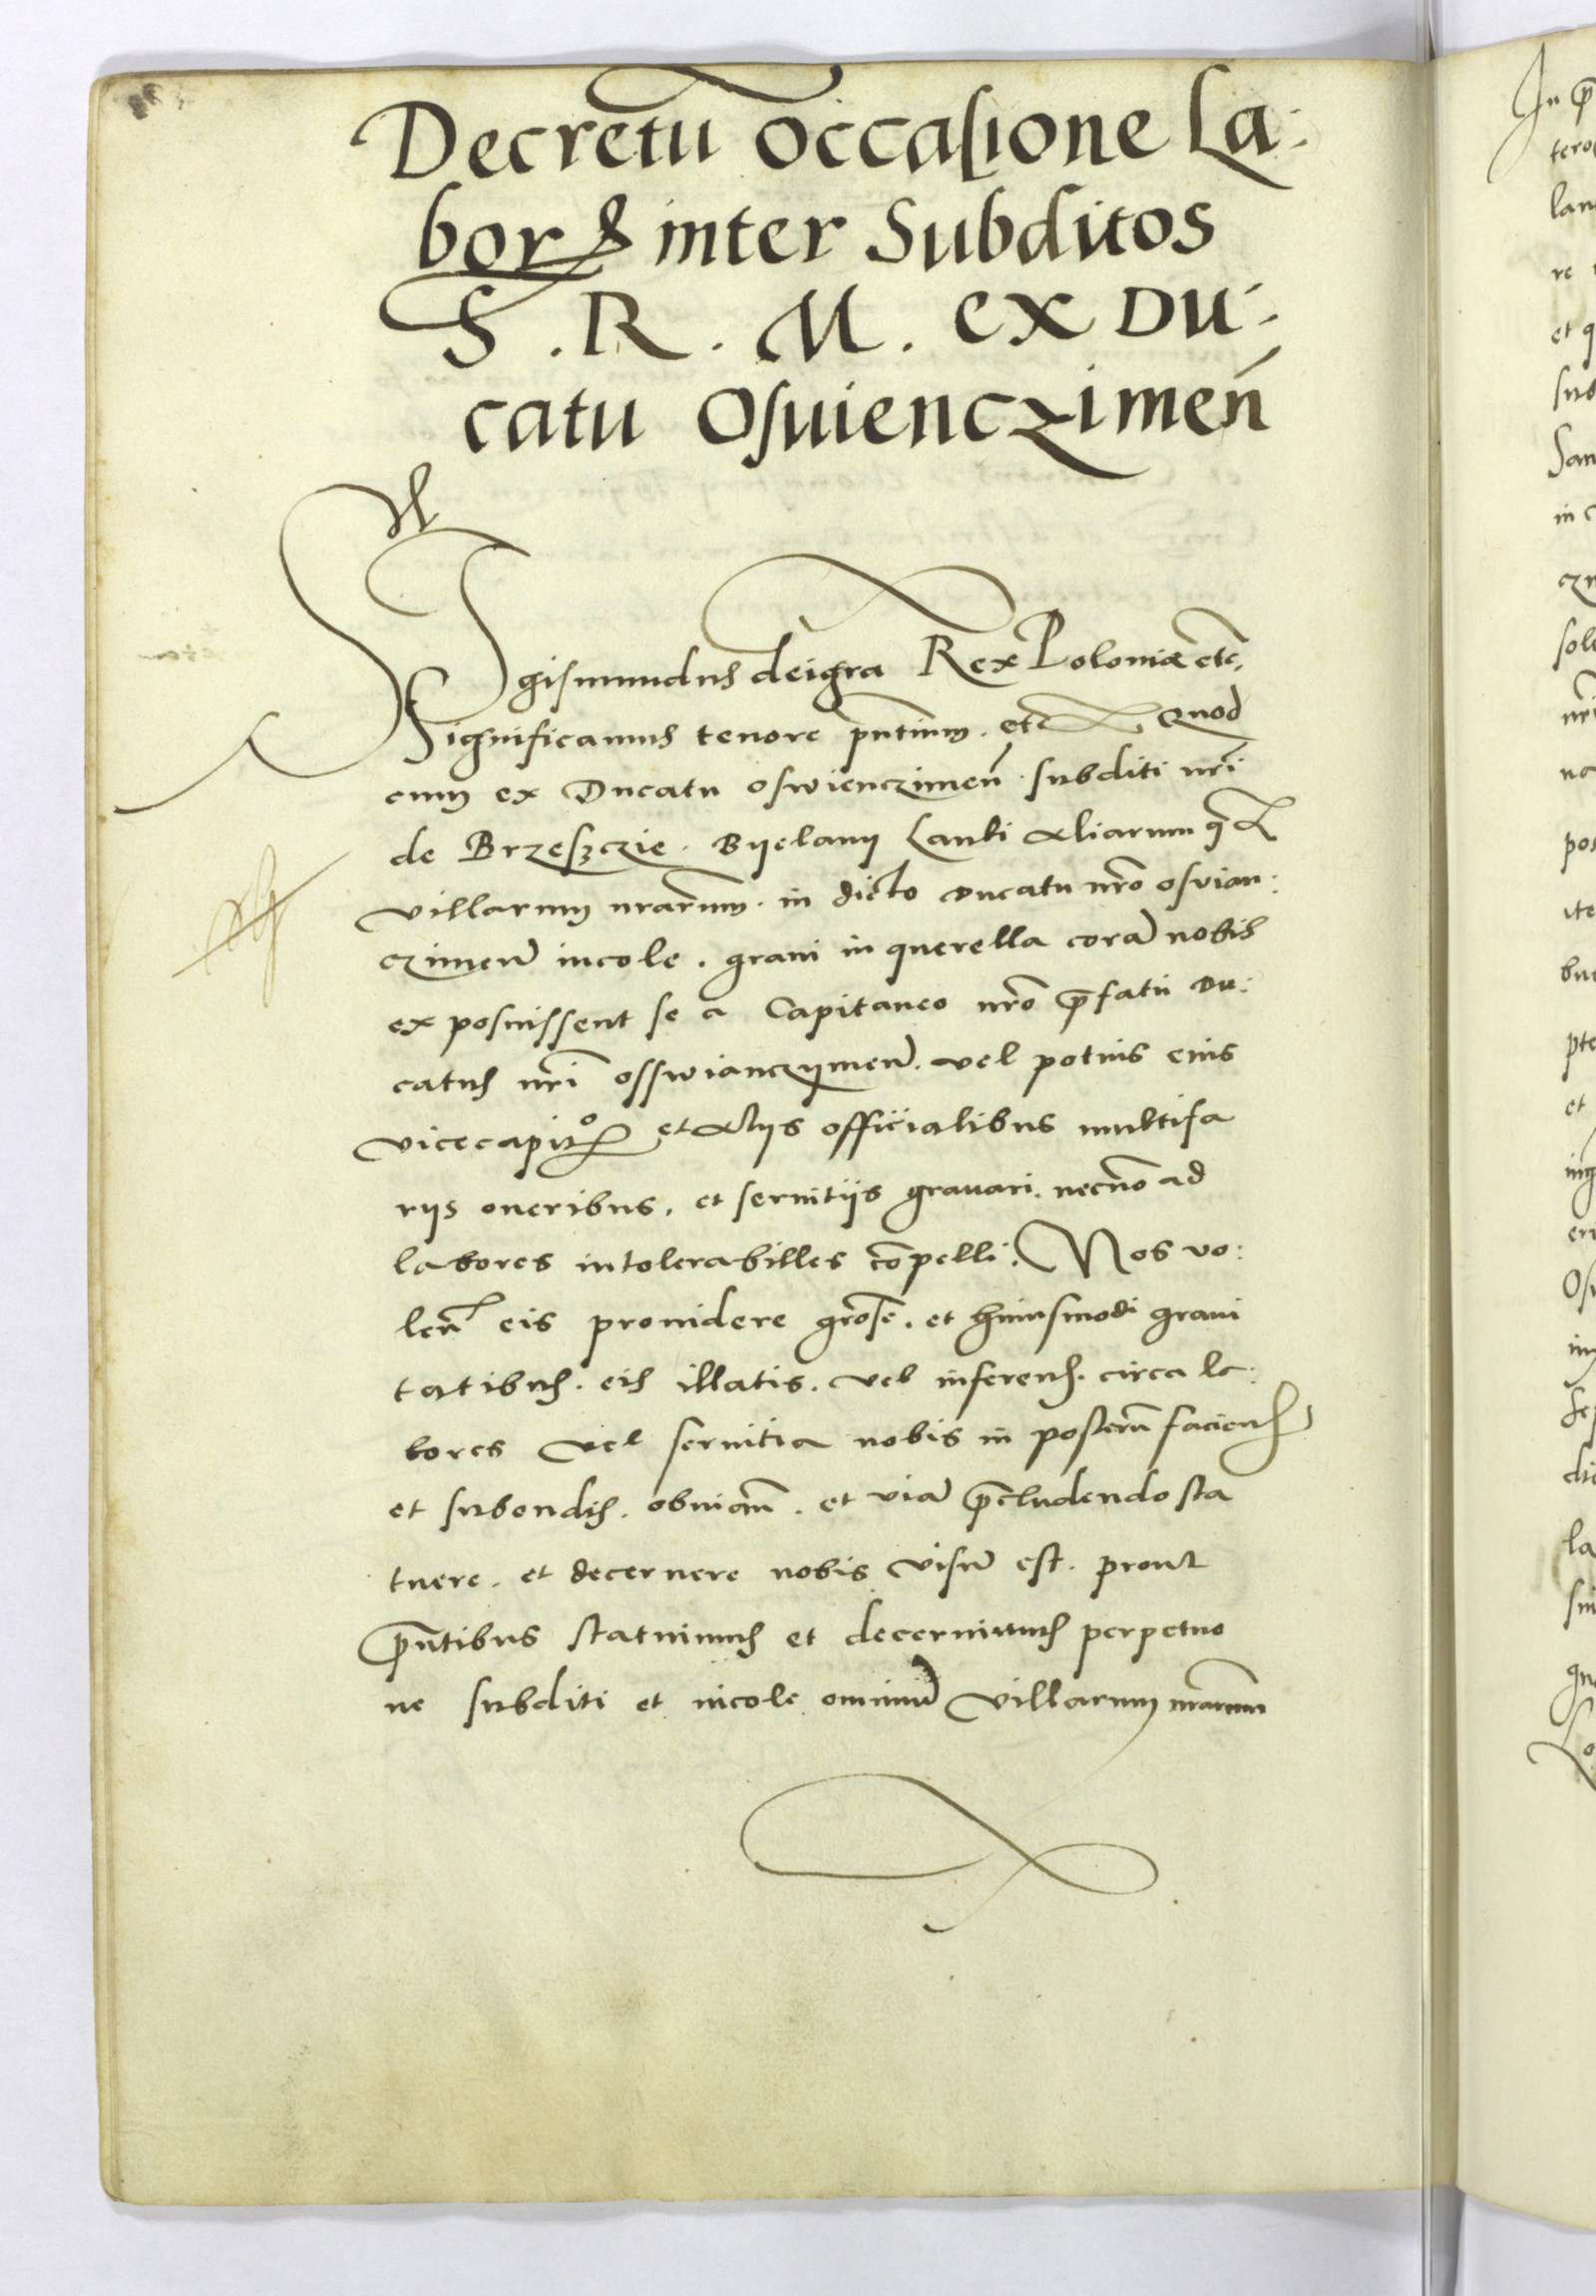 Decretū occasione La:
bor& inter Subditos
S. R. M. ex Du:
catu Osuienczimen̄
Sigismundus dei gra Rex Poloniæ etc.
Significamus tenore pn̄tium. etc Quod
cum ex Ducatu oswienczimen̄ subditi nr̄i
de Brzesczie. Byelany Lanki Aliarum q3
villarum nrārum. in dicto Ducatu nrō osvian:
czimen̄ incole. graui in querella corā nobis
exposuissent se a Capitaneo nrō p̄fati Du:
catus nr̄i osswianczymen̄. vel potius eius
vicecapito et Alys officialibus multifa
rys oneribus. et seruitijs grauari. necnō ad
labores intolerabilles cōpelli. Nos vo:
len̄ eis prouidere grōse. et huiusmodi graui
tatibus. eis illatis. vel inferens. circa la:
bores vel seruitia nobis in posterū faciens
et subeundis. obuiam̄. et viā p̄cludendo sta
tuere. et decernere nobis visū est. prout
p̄ntibus statuimus et decernimus perpetuo
ne subditi et incole omniū villarum nrārum
In p̄
lan
re
et q
sub
San
in